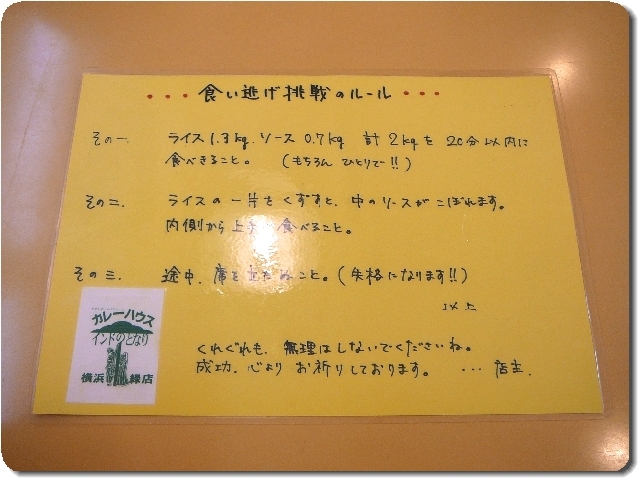 ・・・食い逃げ挑戦のルール・・・
その一. ライス1.3kg.ソース0.7kg 計2kgを20分以内に
食べきること。(もちろん ひとりで!!)
その二. ライスの一片をくずすと、中のソースがこぼれます。
内側から上手に食べること。
その三. 途中、席を立たぬこと。(失格になります!!)
以上
くれぐれも、無理はしないでくださいね。
成功、心よりお祈りしております。 … 店主.
カレーハウス
インドのとなり
横浜 緑店